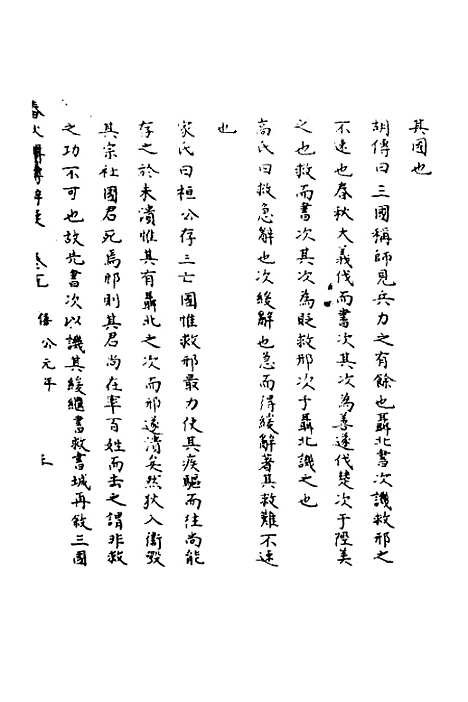 其國也
胡傳曰三國稱師見兵力之有餘也聶北書次譏救邢之
不速也春秋大義伐而書次其次為善遂伐楚次于陘美
之也救而書次其次為貶救邢次于聶北譏之也
高氏曰救急辭也次緩辭也急而得緩辭著其救難不速
也
家氏曰桓公存三亡國惟救邢最力使其疾驅而往尚能
存之於未潰惟其有聶北之次而邢遂潰矣然狄入衞毀
其宗社國君死焉邢則其君尚在率百姓而去之謂非救
之功不可也故先書次以譏其緩繼書救書城再敘三國
春秋 卷五 僖公元年 三